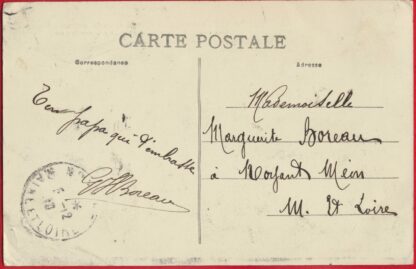 CARTE POSTALE
Correspondance
Adresse
Ton papa qui t'embrasse
Boreau
Mademoiselle
Marguerite Boreau
à Noyant Méon
M. et Loire